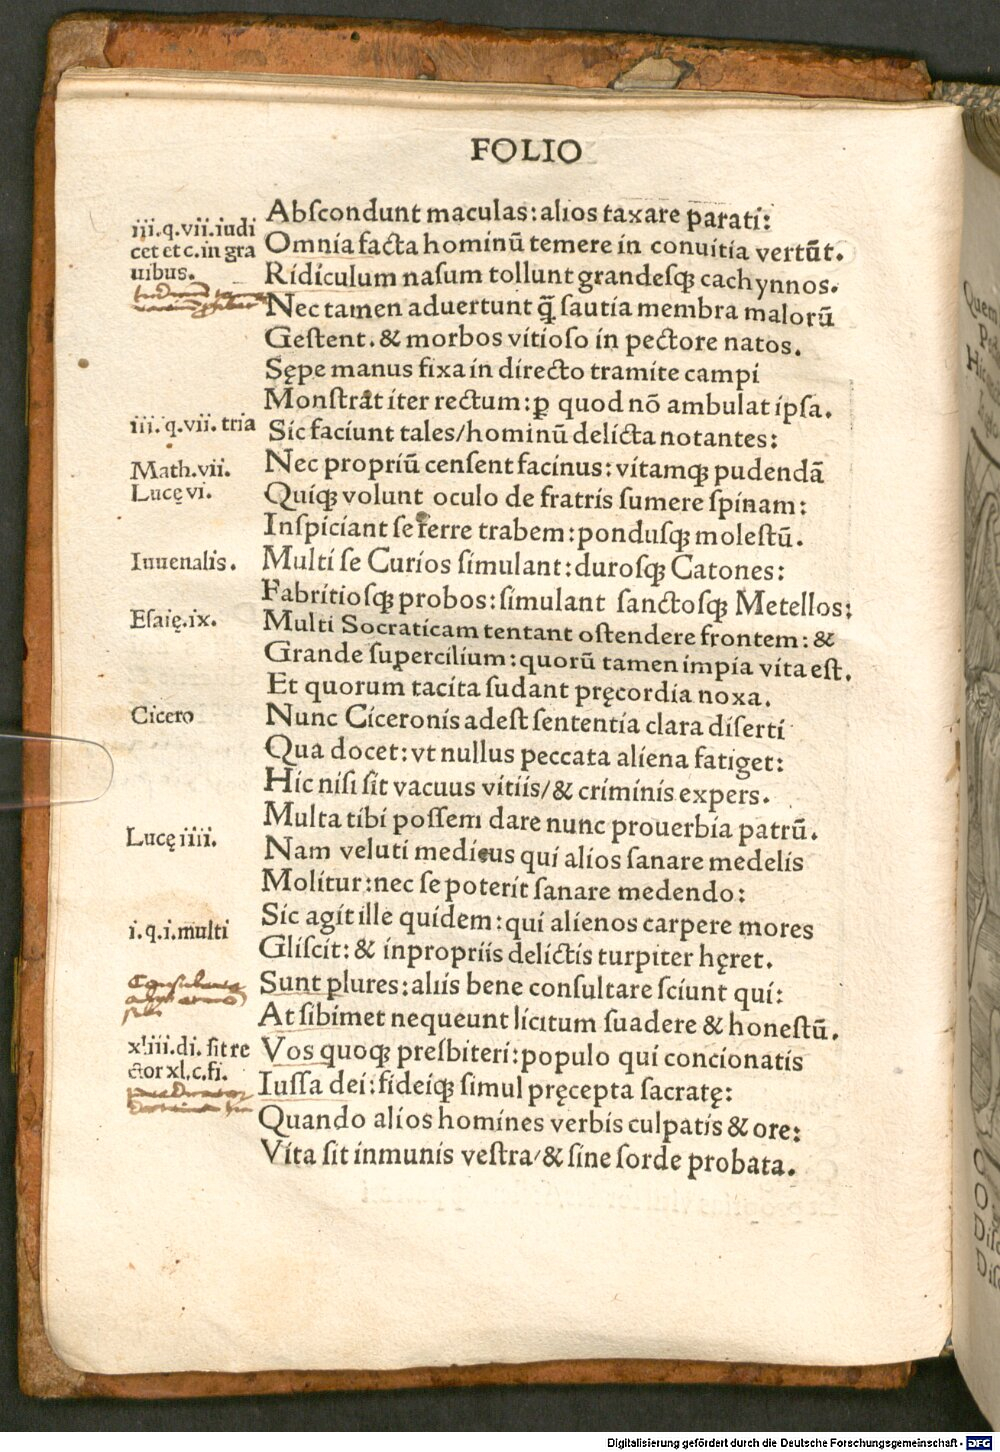 FOLIO
iii.q.vii.iudi
cet et c.in gra
uibus.
Abſcondunt maculas: alios taxare parati:
Omnia facta hominū temere in conuitia vertūt.
Ridiculum naſum tollunt grandeſqꝫ cachynnos.
Nec tamen aduertunt q̄ ſautia membra malorū
Geſtent. & morbos vitioſo in pectore natos.
Sępe manus fixa in directo tramite campi
Monſtrat iter rectum: ꝑ quod nō ambulat ipſa.
iii.q.vii. tria
Sic faciunt tales/hominū delicta notantes:
Math.vii.
Nec propriū cenſent facinus: vitamqꝫ pudendā
Lucę vi.
Quiqꝫ volunt oculo de fratris ſumere ſpinam:
Inſpiciant ſe ferre trabem: pondusqꝫ moleſtū.
Iuuenalis.
Multi ſe Curios ſimulant: duroſqꝫ Catones:
Fabritioſqꝫ probos: ſimulant ſanctoſqꝫ Metellos:
Eſaię.ix.
Multi Socraticam tentant oſtendere frontem: &
Grande ſupercilium: quorū tamen impia vita eſt.
Et quorum tacita ſudant pręcordia noxa.
Cicero
Nunc Ciceronis adeſt ſententia clara diſerti
Qua docet: vt nullus peccata aliena fatiget:
Hic niſi ſit vacuus vitiis/& criminis expers.
Multa tibi poſſem dare nunc prouerbia patrū.
Lucę iiii.
Nam veluti medicus qui alios ſanare medelis
Molitur: nec ſe poterit ſanare medendo:
i.q.i.multi
Sic agit ille quidem: qui alienos carpere mores
Gliſcit: & inpropriis delictis turpiter hęret.
Sunt plures: aliis bene conſultare ſciunt qui:
At ſibimet nequeunt licitum ſuadere & honeſtū.
xliii.di. ſit re
ctor xl.c.ſi.
Vos quoqꝫ preſbiteri: populo qui concionatis
Iuſſa dei: fideiqꝫ ſimul pręcepta ſacratę:
Quando alios homines verbis culpatis & ore:
Vita ſit inmunis veſtra/& ſine ſorde probata.
Digitalisierung gefördert durch die Deutsche Forschungsgemeinschaft - DFG